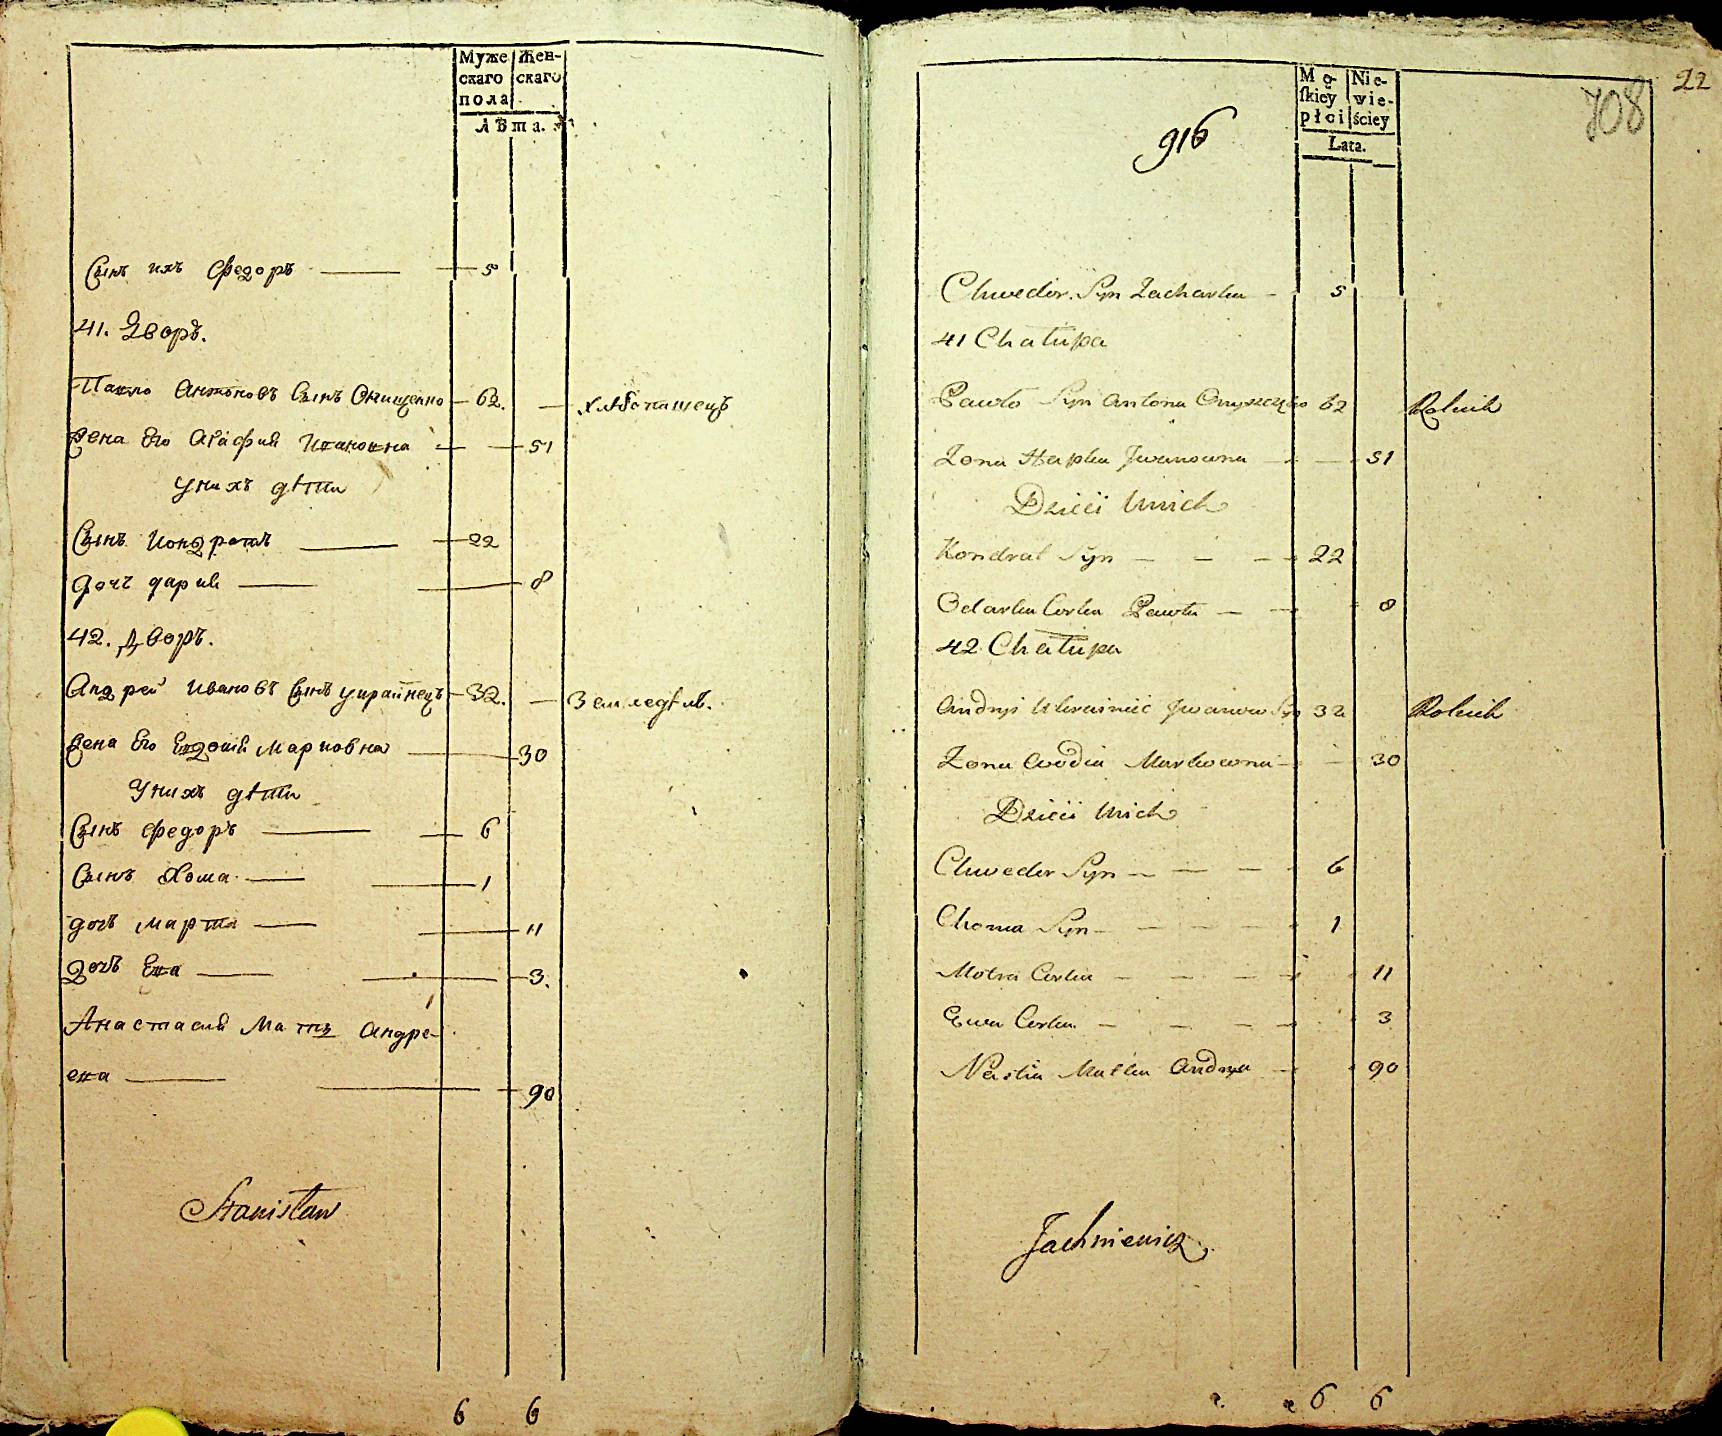 Муже Жен-
скаго скаго
пола
Лѣта.
Сынъ ихъ Федоръ 5
41. Дворъ.
Павло Антоновъ Сынъ Онищенко 62. хлѣбопашецъ
Жена Его Агафия Ивановна 51
У нихъ дѣти
Сынъ Кондратъ 22
Дочь дария 8
42. Дворъ.
Андрей Ивановъ Сынъ украинецъ 32. Земледѣл.
Жена Его Евдокия Марковна 30
У нихъ дѣти
Сынъ Федоръ 6
Сынъ Хома 1
дочь Марта 11
Дочь Ева 3.
Анастасия Мать Андре-
ева 90
Stanisław
6 6
22
708
916
Mę- Nie-
skiey wie-
płci ściey
Lata.
Chwedor Syn Zacharka 5
41 Chałupa
Pawło Syn Antona Onyszczenko 62 Rolnik
Zona Hapka Jwanowna 51
Dzieci Unich
Kondrat Syn 22
Odarka Corka Pawła 8
42 Chałupa
Andryi Ukrainiec Jwanow Syn 32 Rolnik
Zona Owdia Markowna 30
Dzieci Unich
Chwedor Syn 6
Choma Syn 1
Motra Corka 11
Ewa Corka 3
Nastia Matka Andryia 90
Jachniewicz
6 6